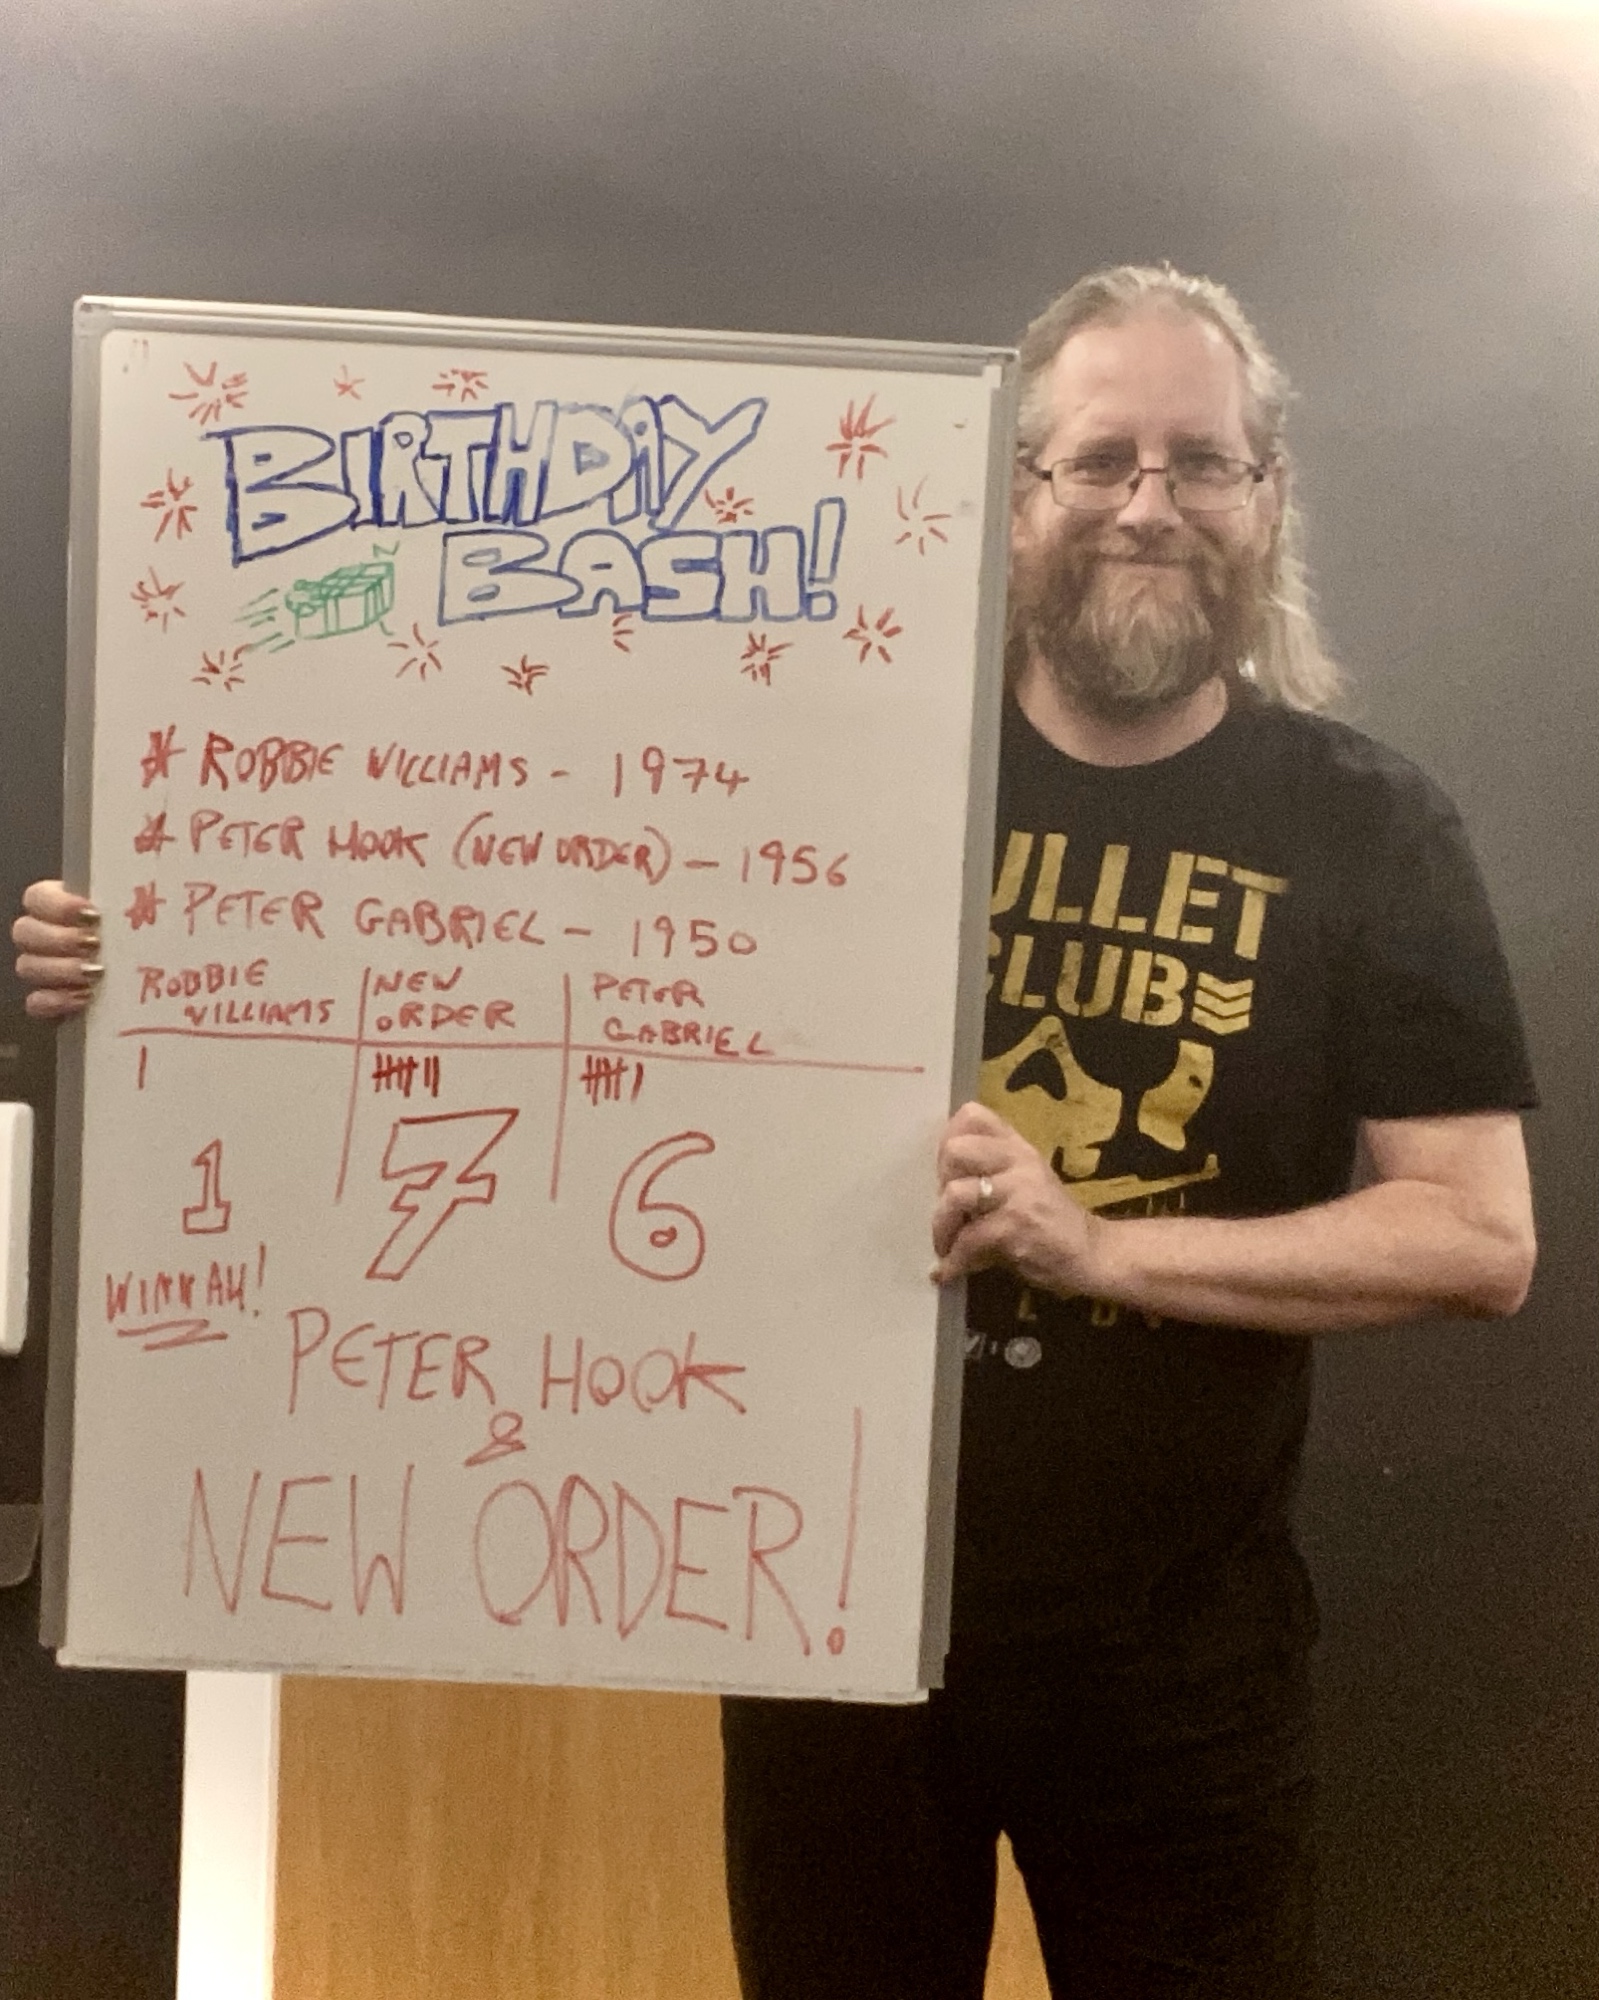 BIRTHDAY
BASH!
* ROBBIE WILLIAMS - 1974
* PETER HOOK (NEW ORDER) - 1956
* PETER GABRIEL - 1950
ROBBIE WILLIAMS
NEW ORDER
PETER GABRIEL
1
7
6
WINNAH!
PETER HOOK
&
NEW ORDER!
ULLET
CLUB